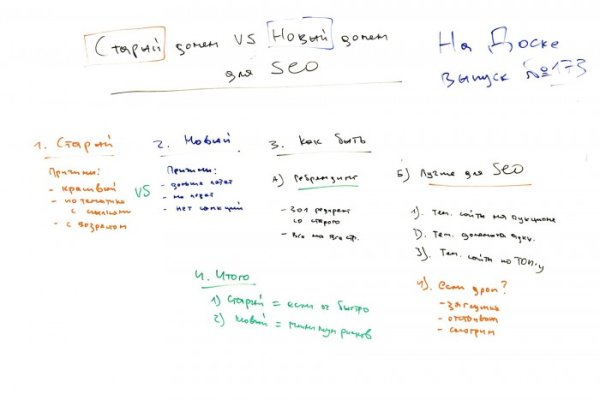 Старый домен VS Новый домен
для SEO
На Доске
выпуск №173
1. Старый
Причины:
- красивый
- по тематике
с ссылками
- с возрастом
VS
2. Новый
Причины:
- дольше
- нет санкций
3. Как быть
А) Ребрендинг
- 301 редирект
со старого
- все на все стр.
Б) Лучше для SEO
1). Тем. сайты на аукционе
2). Тем. домены
3). Тем. сайты по ТОП-у
4). если дроп?
- заглушка
- отстойник
- смотрим
4. Итого
1) Старый = если оч быстро
2) Новый = минимум рисков